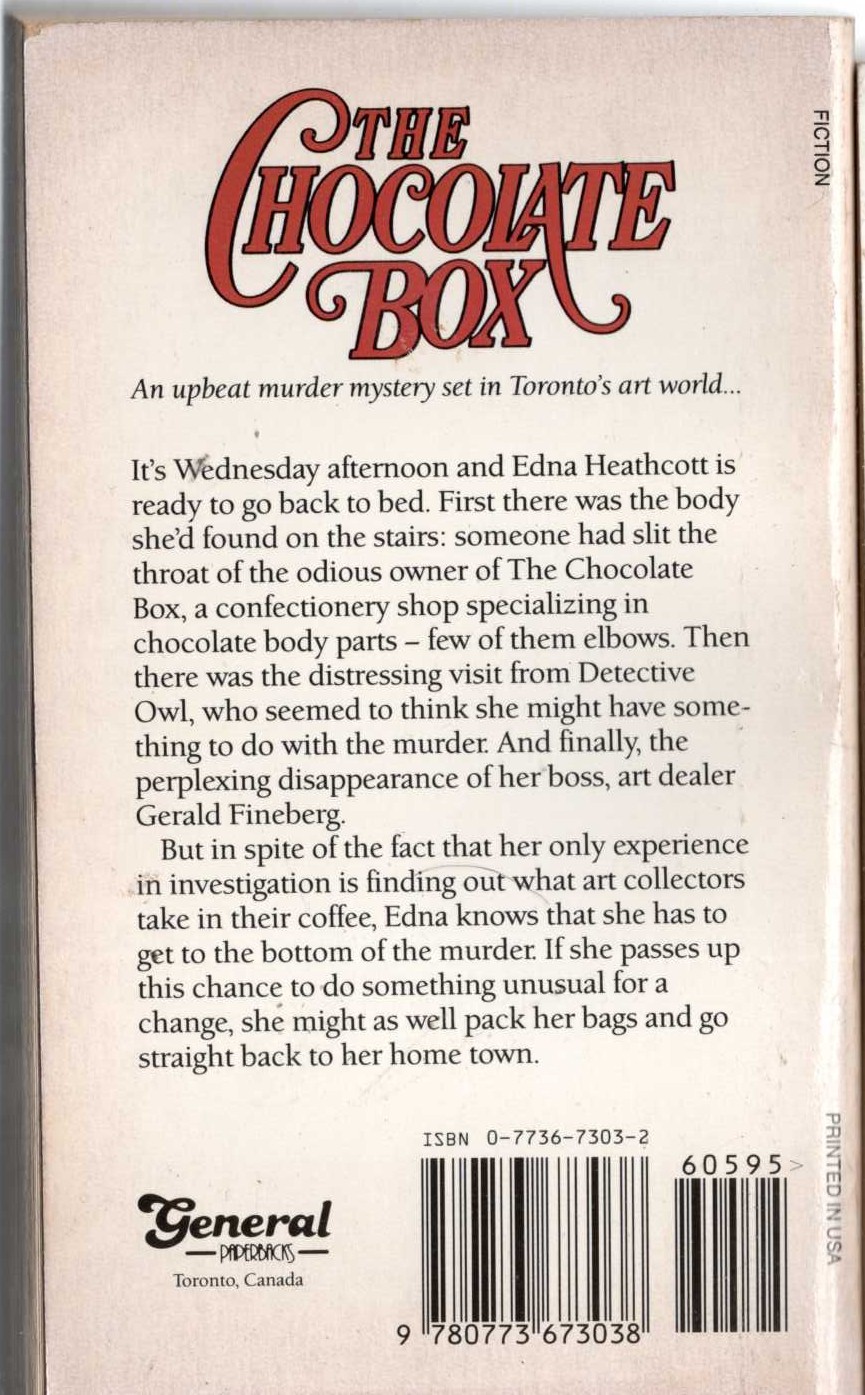 THE
CHOCOLATE
BOX
An upbeat murder mystery set in Toronto's art world...
It's Wednesday afternoon and Edna Heathcott is
ready to go back to bed. First there was the body
she'd found on the stairs: someone had slit the
throat of the odious owner of The Chocolate
Box, a confectionery shop specializing in
chocolate body parts – few of them elbows. Then
there was the distressing visit from Detective
Owl, who seemed to think she might have some-
thing to do with the murder. And finally, the
perplexing disappearance of her boss, art dealer
Gerald Fineberg.
But in spite of the fact that her only experience
in investigation is finding out what art collectors
take in their coffee, Edna knows that she has to
get to the bottom of the murder. If she passes up
this chance to do something unusual for a
change, she might as well pack her bags and go
straight back to her home town.
ISBN 0-7736-7303-2
60595>
9 780773 673038
General
PAPERBACKS
Toronto, Canada
FICTION
PRINTED IN USA